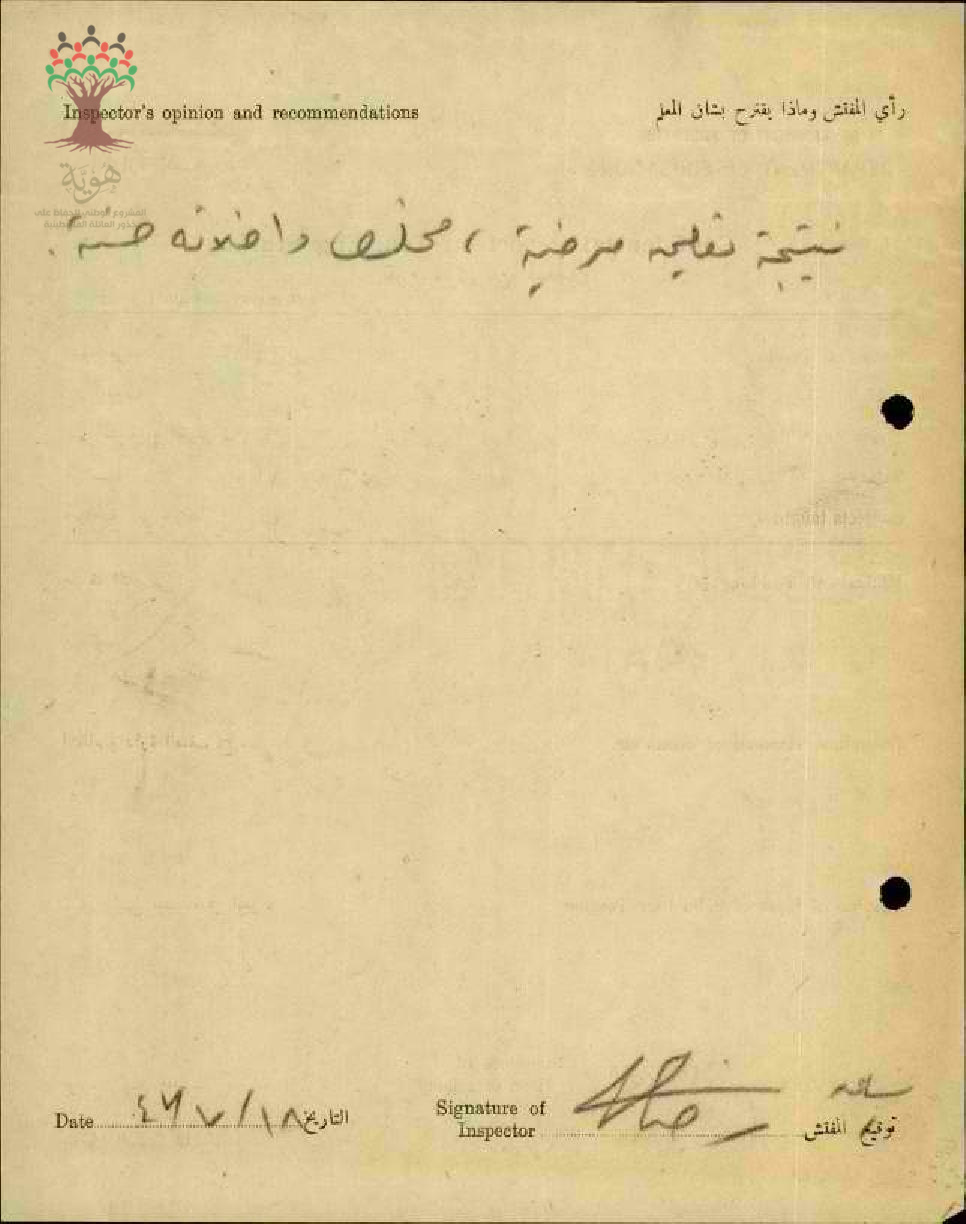 Inspector's opinion and recommendations
رأي المفتش وماذا يقترح بشأن المعلم
هوية
المشروع الوطني للحفاظ على
جذور العائلة الفلسطينية
نتيجة تعليمه مرضية ، مخلص واخلاقه حسنة .
Date التاريخ ١٨/٧/٤٦
Signature of
Inspector
توقيع المفتش